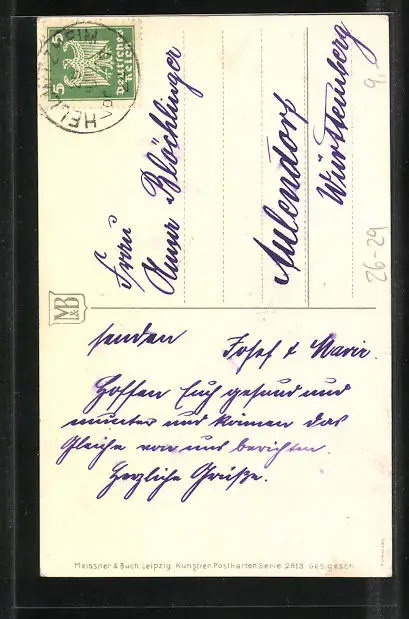 5 5
Deutsches
Reich
Frau
Blöchlinger
Aulendorf
Württemberg
9,
26-29
M&B
senden Josef & Marie.
Hoffen Euch gesund und
munter und können das
Gleiche von uns berichten.
Herzliche Grüße.
Meissner & Buch, Leipzig. Künstler-Postkarten Serie 2613 Ges. gesch.